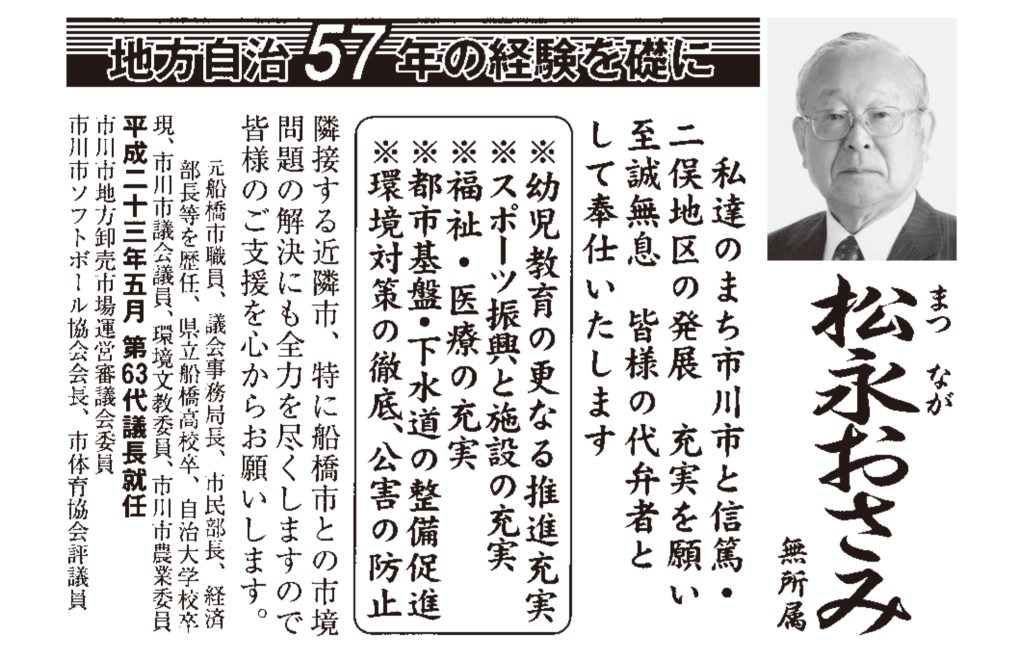 地方自治57年の経験を礎に
まつ なが
松永おさみ
無所属
私達のまち市川市と信篤・
二俣地区の発展 充実を願い
至誠無息 皆様の代弁者と
して奉仕いたします
※幼児教育の更なる推進充実
※スポーツ振興と施設の充実
※福祉・医療の充実
※都市基盤・下水道の整備促進
※環境対策の徹底、公害の防止
隣接する近隣市、特に船橋市との市境
問題の解決にも全力を尽くしますので
皆様のご支援を心からお願いします。
元船橋市職員、議会事務局長、市民部長、経済
部長等を歴任、県立船橋高校卒、自治大学校卒
現、市川市議会議員、環境文教委員、市川市農業委員
平成二十三年五月 第63代議長就任
市川市地方卸売市場運営審議会委員
市川市ソフトボール協会会長、市体育協会評議員